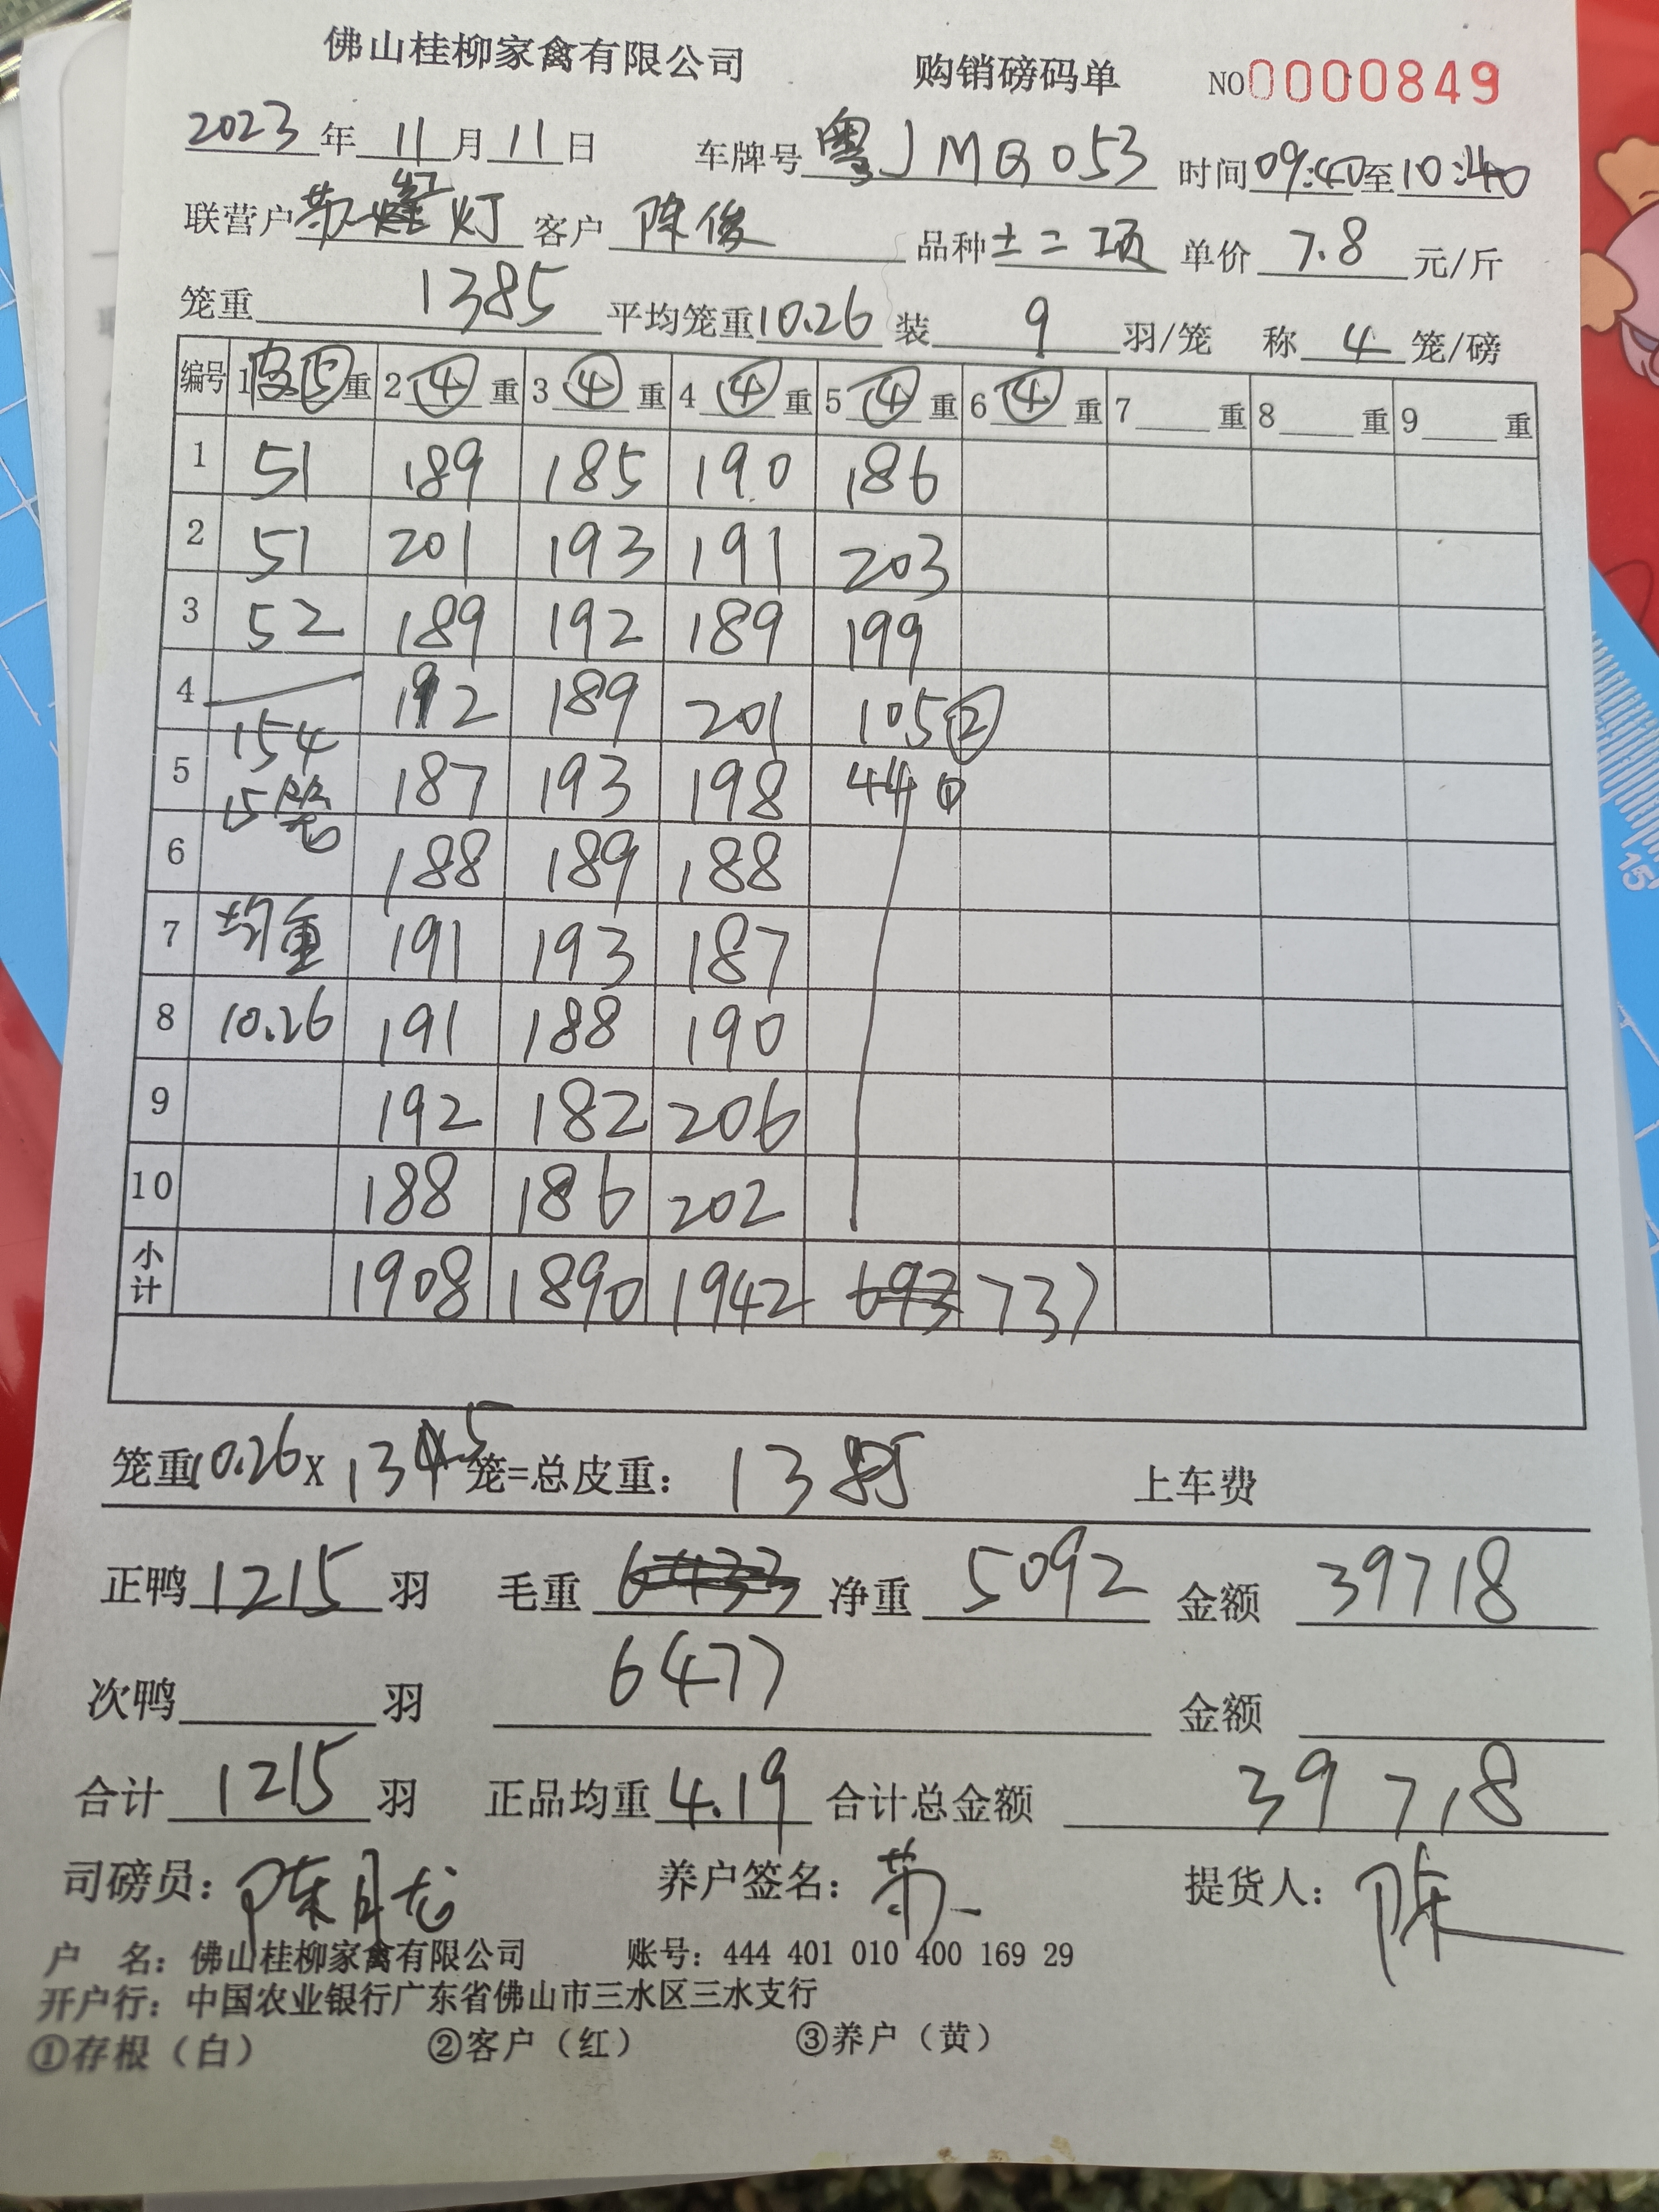 佛山桂柳家禽有限公司 购销磅码单 NO0000849
2023年11月11日 车牌号粤JMQ053 时间09:40至10:40
联营户苏红灯 客户陈俊 品种土二项 单价7.8元/斤
笼重1385平均笼重10.26装9羽/笼 称4笼/磅
编号 1皮⑤重 2④重 3④重 4④重 5④重 6④重 7重 8重 9重
1 51 189 185 190 186
2 51 201 193 191 203
3 52 189 192 189 199
4 192 189 201 105②
154
5 187 193 198 440
15笼
6 188 189 188
7 均重 191 193 187
8 10.26 191 188 190
9 192 182 206
10 188 186 202
小计 1908 1890 1942 693 737
笼重10.26X135笼=总皮重：1385 上车费
正鸭1215羽 毛重6433净重5092 金额39718
6477
次鸭 羽 金额
合计1215羽 正品均重4.19合计总金额39718
司磅员：陈月龙 养户签名：苏 提货人：陈
户 名：佛山桂柳家禽有限公司 账号：444 401 010 400 169 29
开户行：中国农业银行广东省佛山市三水区三水支行
①存根（白） ②客户（红） ③养户（黄）
15